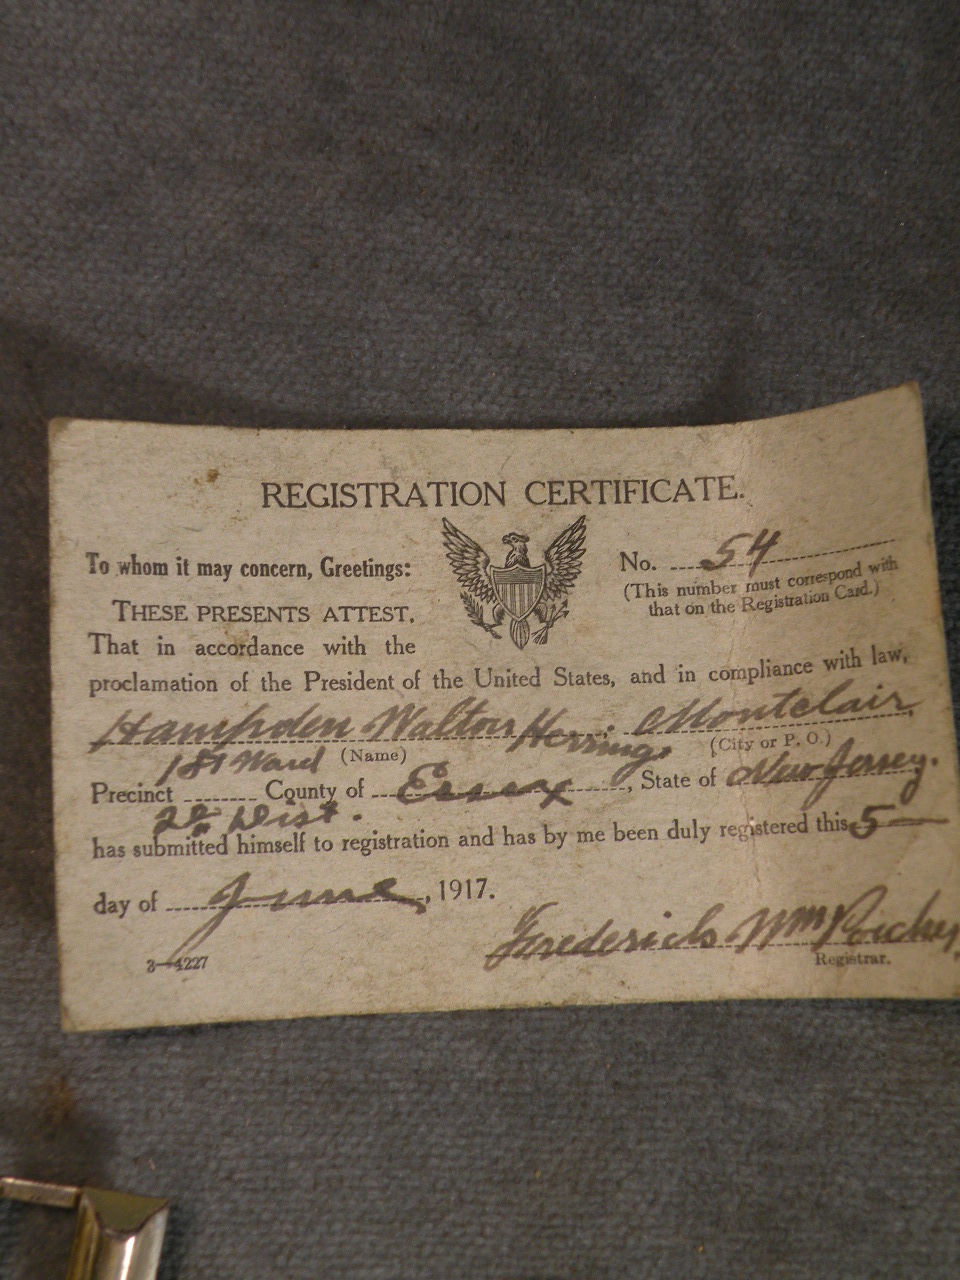 REGISTRATION CERTIFICATE.
To whom it may concern, Greetings:
No. 54
(This number must correspond with
that on the Registration Card.)
THESE PRESENTS ATTEST,
That in accordance with the
proclamation of the President of the United States, and in compliance with law,
Hampden Walton Herring, Montclair,
(Name) (City or P. O.)
1st Ward
Precinct County of Essex, State of New Jersey.
2d Dist.
has submitted himself to registration and has by me been duly registered this 5
day of June, 1917.
Frederick Wm
3—4227
Registrar.